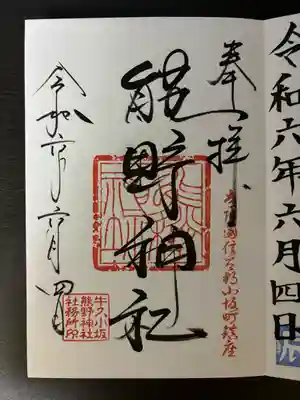 令和六年六月四日
奉拝
常陸国信太郡小坂町鎮座
熊野神社
令和六年六月四日
牛久小坂
熊野神社
社務所印